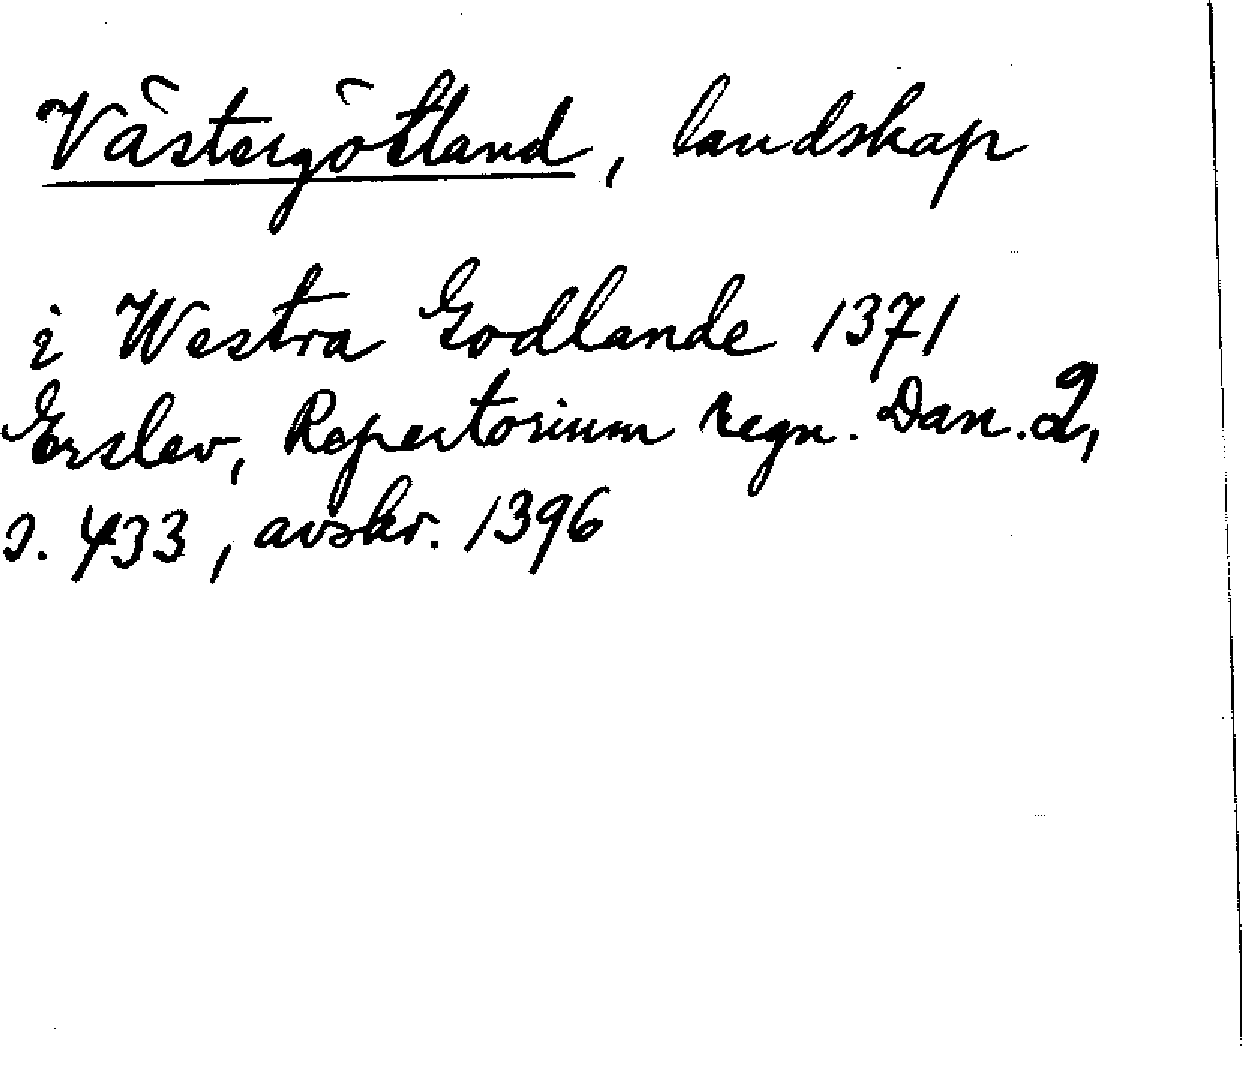 Västergötland, landskap
i Westra Godlande 1371
Erslev, Repertorium regn. Dan. 2,
s. 433, avskr. 1396